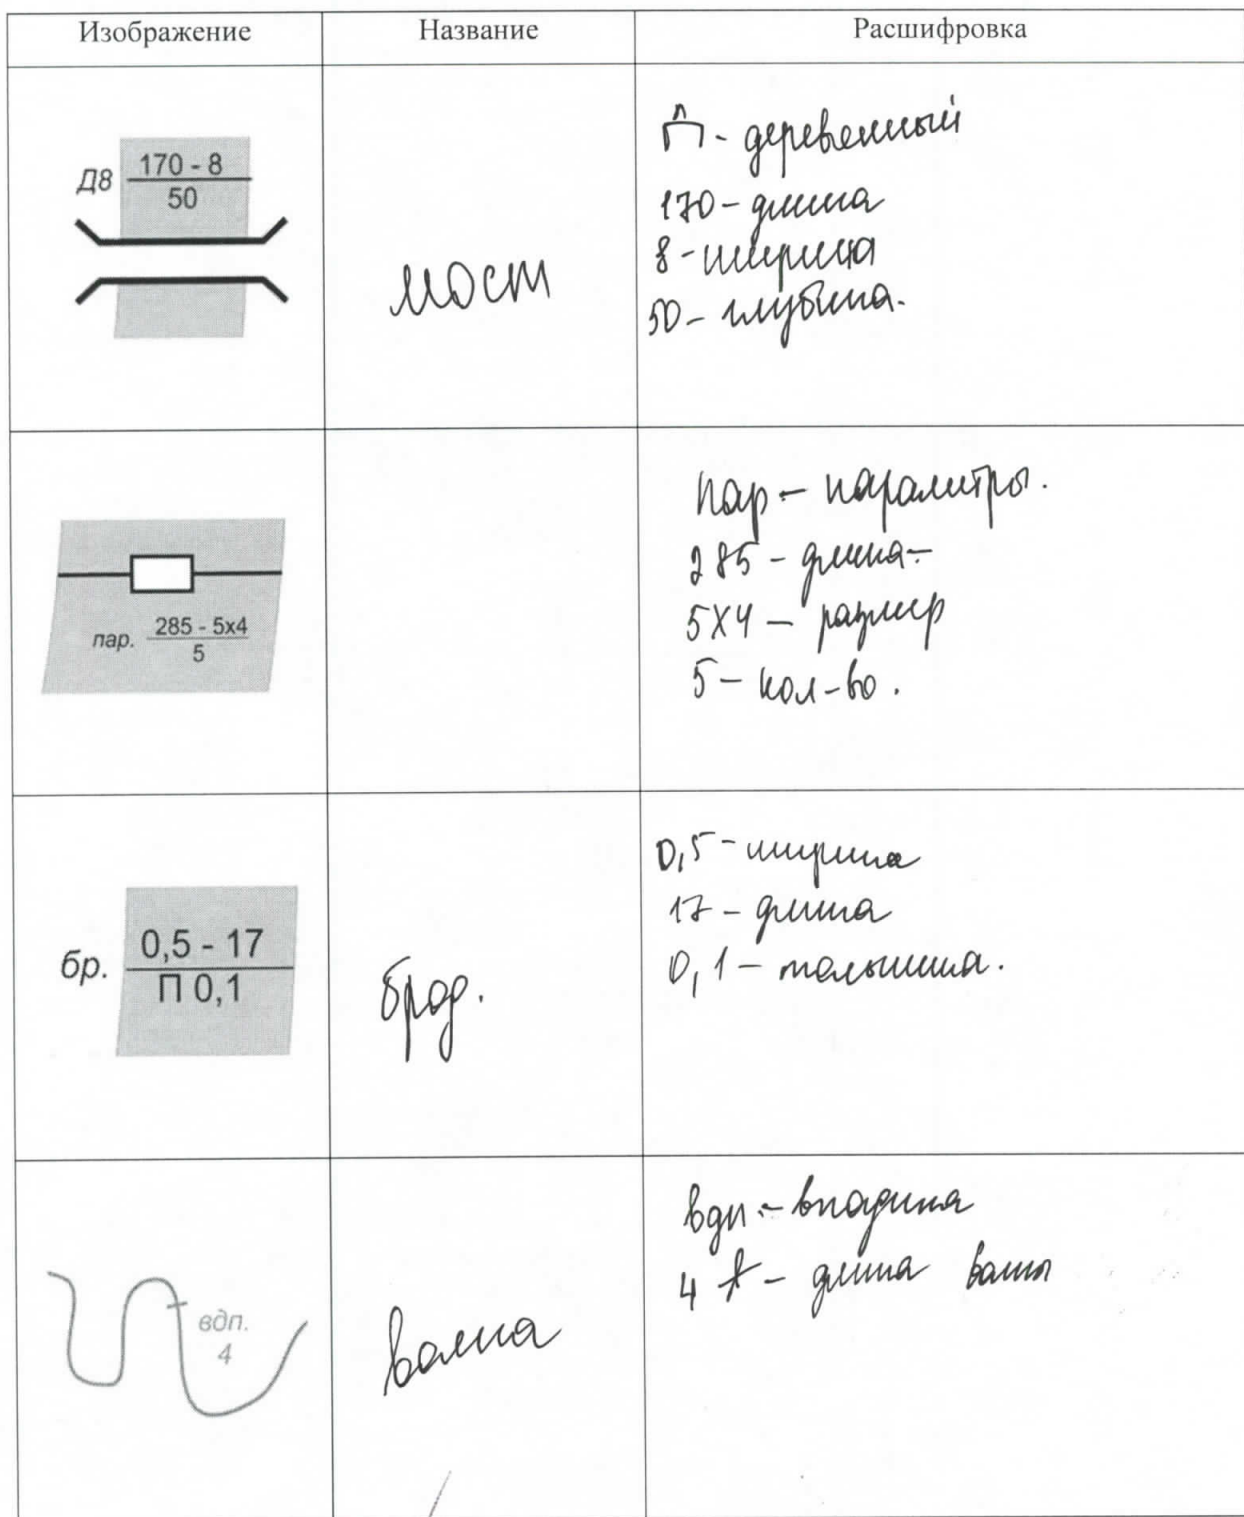 Изображение Название Расшифровка
Д8 170 - 8
50
мост
Д - деревенный
170 - длина
8 - ширина
50 - глубина.
пар. 285 - 5х4
5
Пар - параметры.
285 - длина -
5х4 - размер
5 - кол-во.
бр. 0,5 - 17
П 0,1
брод.
0,5 - ширина
17 - длина
0,1 - толщина.
вдп.
4
волна
вдп - впадина
4 - длина волны